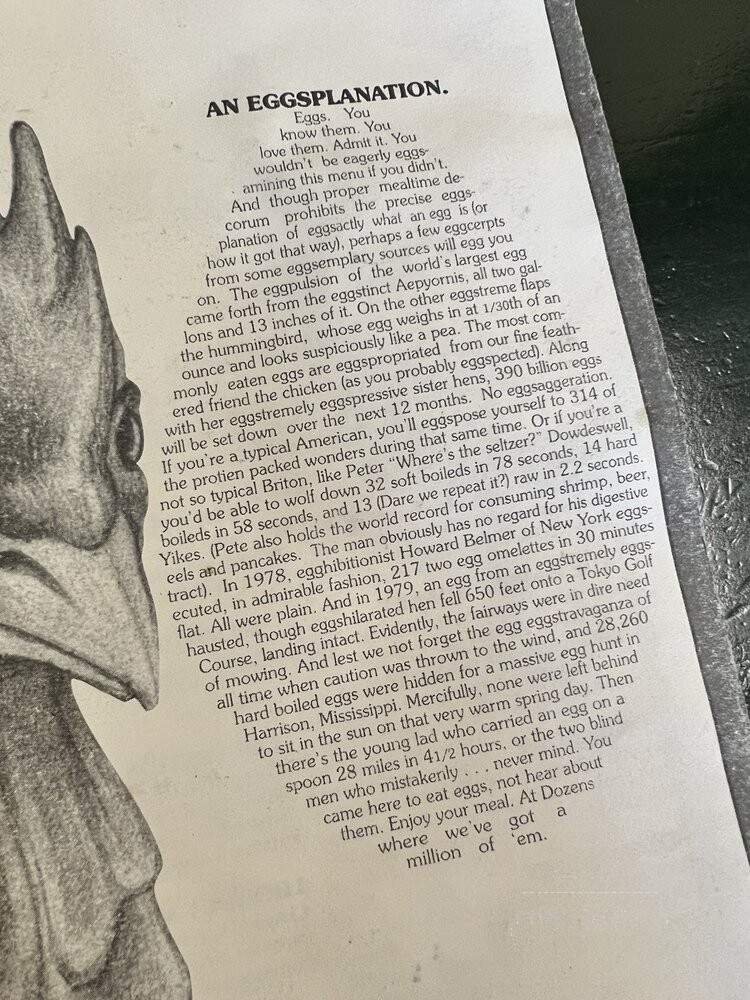 AN EGGSPLANATION.
Eggs. You
know them. You
love them. Admit it. You
wouldn't be eagerly eggs-
amining this menu if you didn't.
And though proper mealtime de-
corum prohibits the precise eggs-
planation of eggsactly what an egg is (or
how it got that way), perhaps a few eggcerpts
from some eggsemplary sources will egg you
on. The eggpulsion of the world's largest egg
came forth from the eggstinct Aepyornis, all two gal-
lons and 13 inches of it. On the other eggstreme flaps
the hummingbird, whose egg weighs in at 1/30th of an
ounce and looks suspiciously like a pea. The most com-
monly eaten eggs are eggspropriated from our fine feath-
ered friend the chicken (as you probably eggspected). Along
with her eggstremely eggspressive sister hens, 390 billion eggs
will be set down over the next 12 months. No eggsaggeration.
If you're a typical American, you'll eggspose yourself to 314 of
the protien packed wonders during that same time. Or if you're a
not so typical Briton, like Peter "Where's the seltzer?" Dowdeswell,
you'd be able to wolf down 32 soft boileds in 78 seconds, 14 hard
boileds in 58 seconds, and 13 (Dare we repeat it?) raw in 2.2 seconds.
Yikes. (Pete also holds the world record for consuming shrimp, beer,
eels and pancakes. The man obviously has no regard for his digestive
tract). In 1978, egghibitionist Howard Belmer of New York eggs-
ecuted, in admirable fashion, 217 two egg omelettes in 30 minutes
flat. All were plain. And in 1979, an egg from an eggstremely eggs-
hausted, though eggshilarated hen fell 650 feet onto a Tokyo Golf
Course, landing intact. Evidently, the fairways were in dire need
of mowing. And lest we not forget the egg eggstravaganza of
all time when caution was thrown to the wind, and 28,260
hard boiled eggs were hidden for a massive egg hunt in
Harrison, Mississippi. Mercifully, none were left behind
to sit in the sun on that very warm spring day. Then
there's the young lad who carried an egg on a
spoon 28 miles in 4 1/2 hours, or the two blind
men who mistakenly . . . never mind. You
came here to eat eggs, not hear about
them. Enjoy your meal. At Dozens
where we've got a
million of 'em.